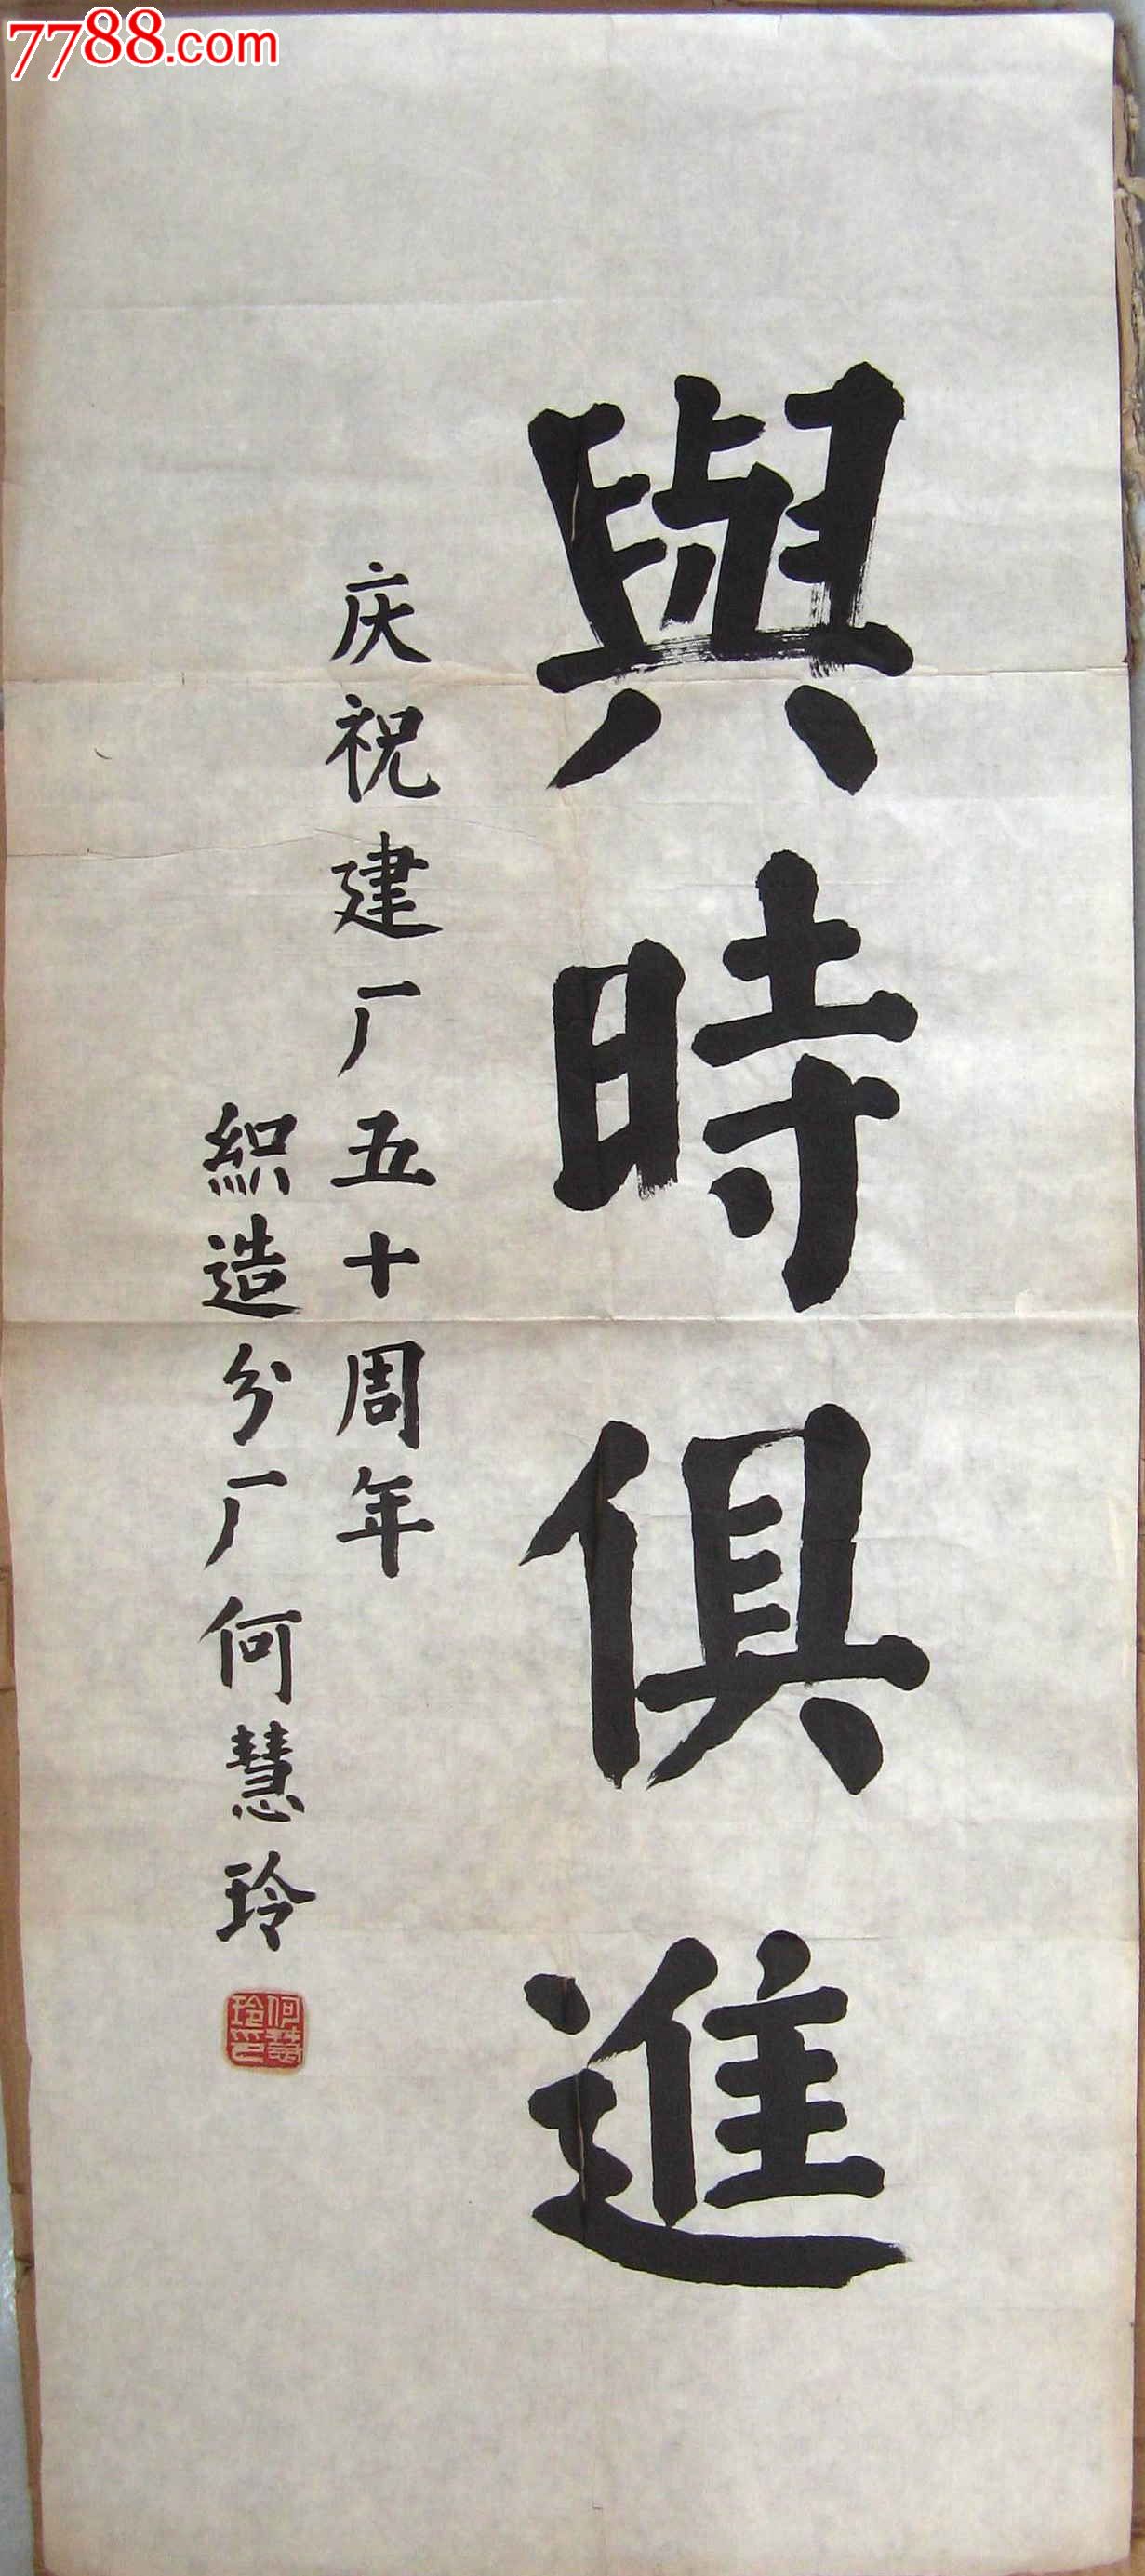 7788.com
與時俱進
庆祝建厂五十周年
織造分厂何慧玲
何慧玲印